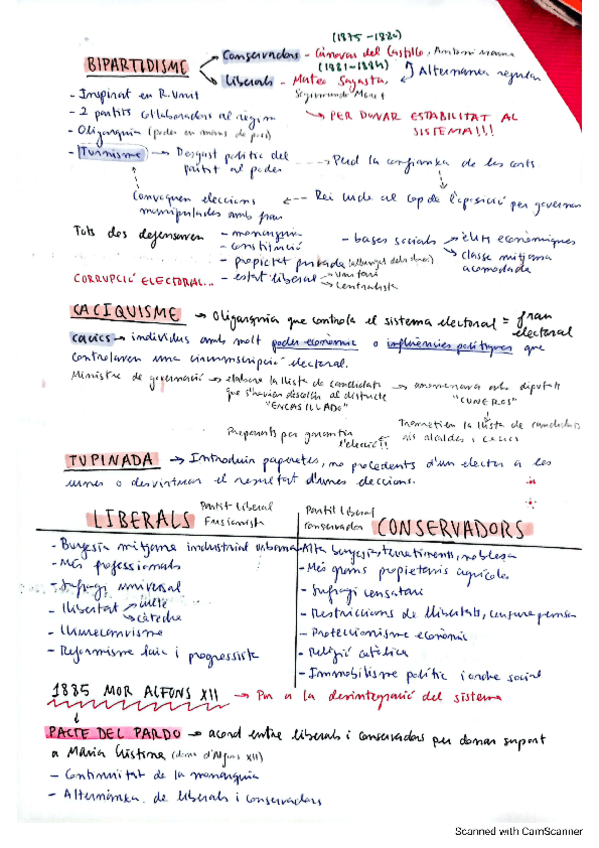 (1875-1880)
BIPARTIDISME
Conservadors - Cánovas del Castillo, Antoni Maura
(1881-1884)
Liberals - Mateo Sagasta,
Segismundo Moret
Alternança regular
- Inspirat en R.Unit
- 2 partits col·laboradors al règim
- Oligarquia (poder en mans de pocs)
→ PER DONAR ESTABILITAT AL SISTEMA!!!
- Turnisme → Desgast polític del partit al poder → Perd la confiança de les corts
Convoquen eleccions manipulades amb frau
Rei crida al cap de l'oposició per governar
Tots dos defensaven
- monarquia
- constitució
- propietat privada
- estat liberal
Unitari
Centralista
- bases socials
elits econòmiques
classe mitjana acomodada
CORRUPCIÓ ELECTORAL...
CACIQUISME → Oligarquia que controla el sistema electoral = frau electoral
cacics → individus amb molt poder econòmic o influències polítiques que
controlaven una circumscripció electoral.
Ministre de governació → elabora la llista de candidats
que s'havien d'escollir al districte
"ENCASILLADO"
diputats
"CUNEROS"
Trametien la llista de candidats
als alcaldes i cacics
Preparats per garantir
l'elecció!!
TUPINADA → Introduir paperetes, no procedents d'un elector a les
urnes o desvirtuar el resultat d'unes eleccions.
LIBERALS
Partit Liberal
Fusionista
Partit Liberal
conservador
CONSERVADORS
- Burgesia mitjana industrial urbana
- Més professionals
- Sufragi universal
- Llibertat
culte
càtedra
- Lliurecanvisme
- Reformisme laic i progressista
- Alta burgesia, terratinents, noblesa
- Més grans propietaris agrícoles
- Sufragi censatari
- Restriccions de llibertats, censura premsa
- Proteccionisme econòmic
- Religió catòlica
- Immobilisme polític i ordre social
1885 MOR ALFONS XII → Por a la desintegració del sistema
PACTE DEL PARDO → acord entre liberals i conservadors per donar suport
a Maria Cristina (dona d'Alfons XII)
- Continuïtat de la monarquia
- Alternança de liberals i conservadors
Scanned with CamScanner